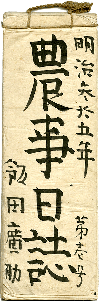 明治参拾五年
農事日誌
第壱号
飯田廣助